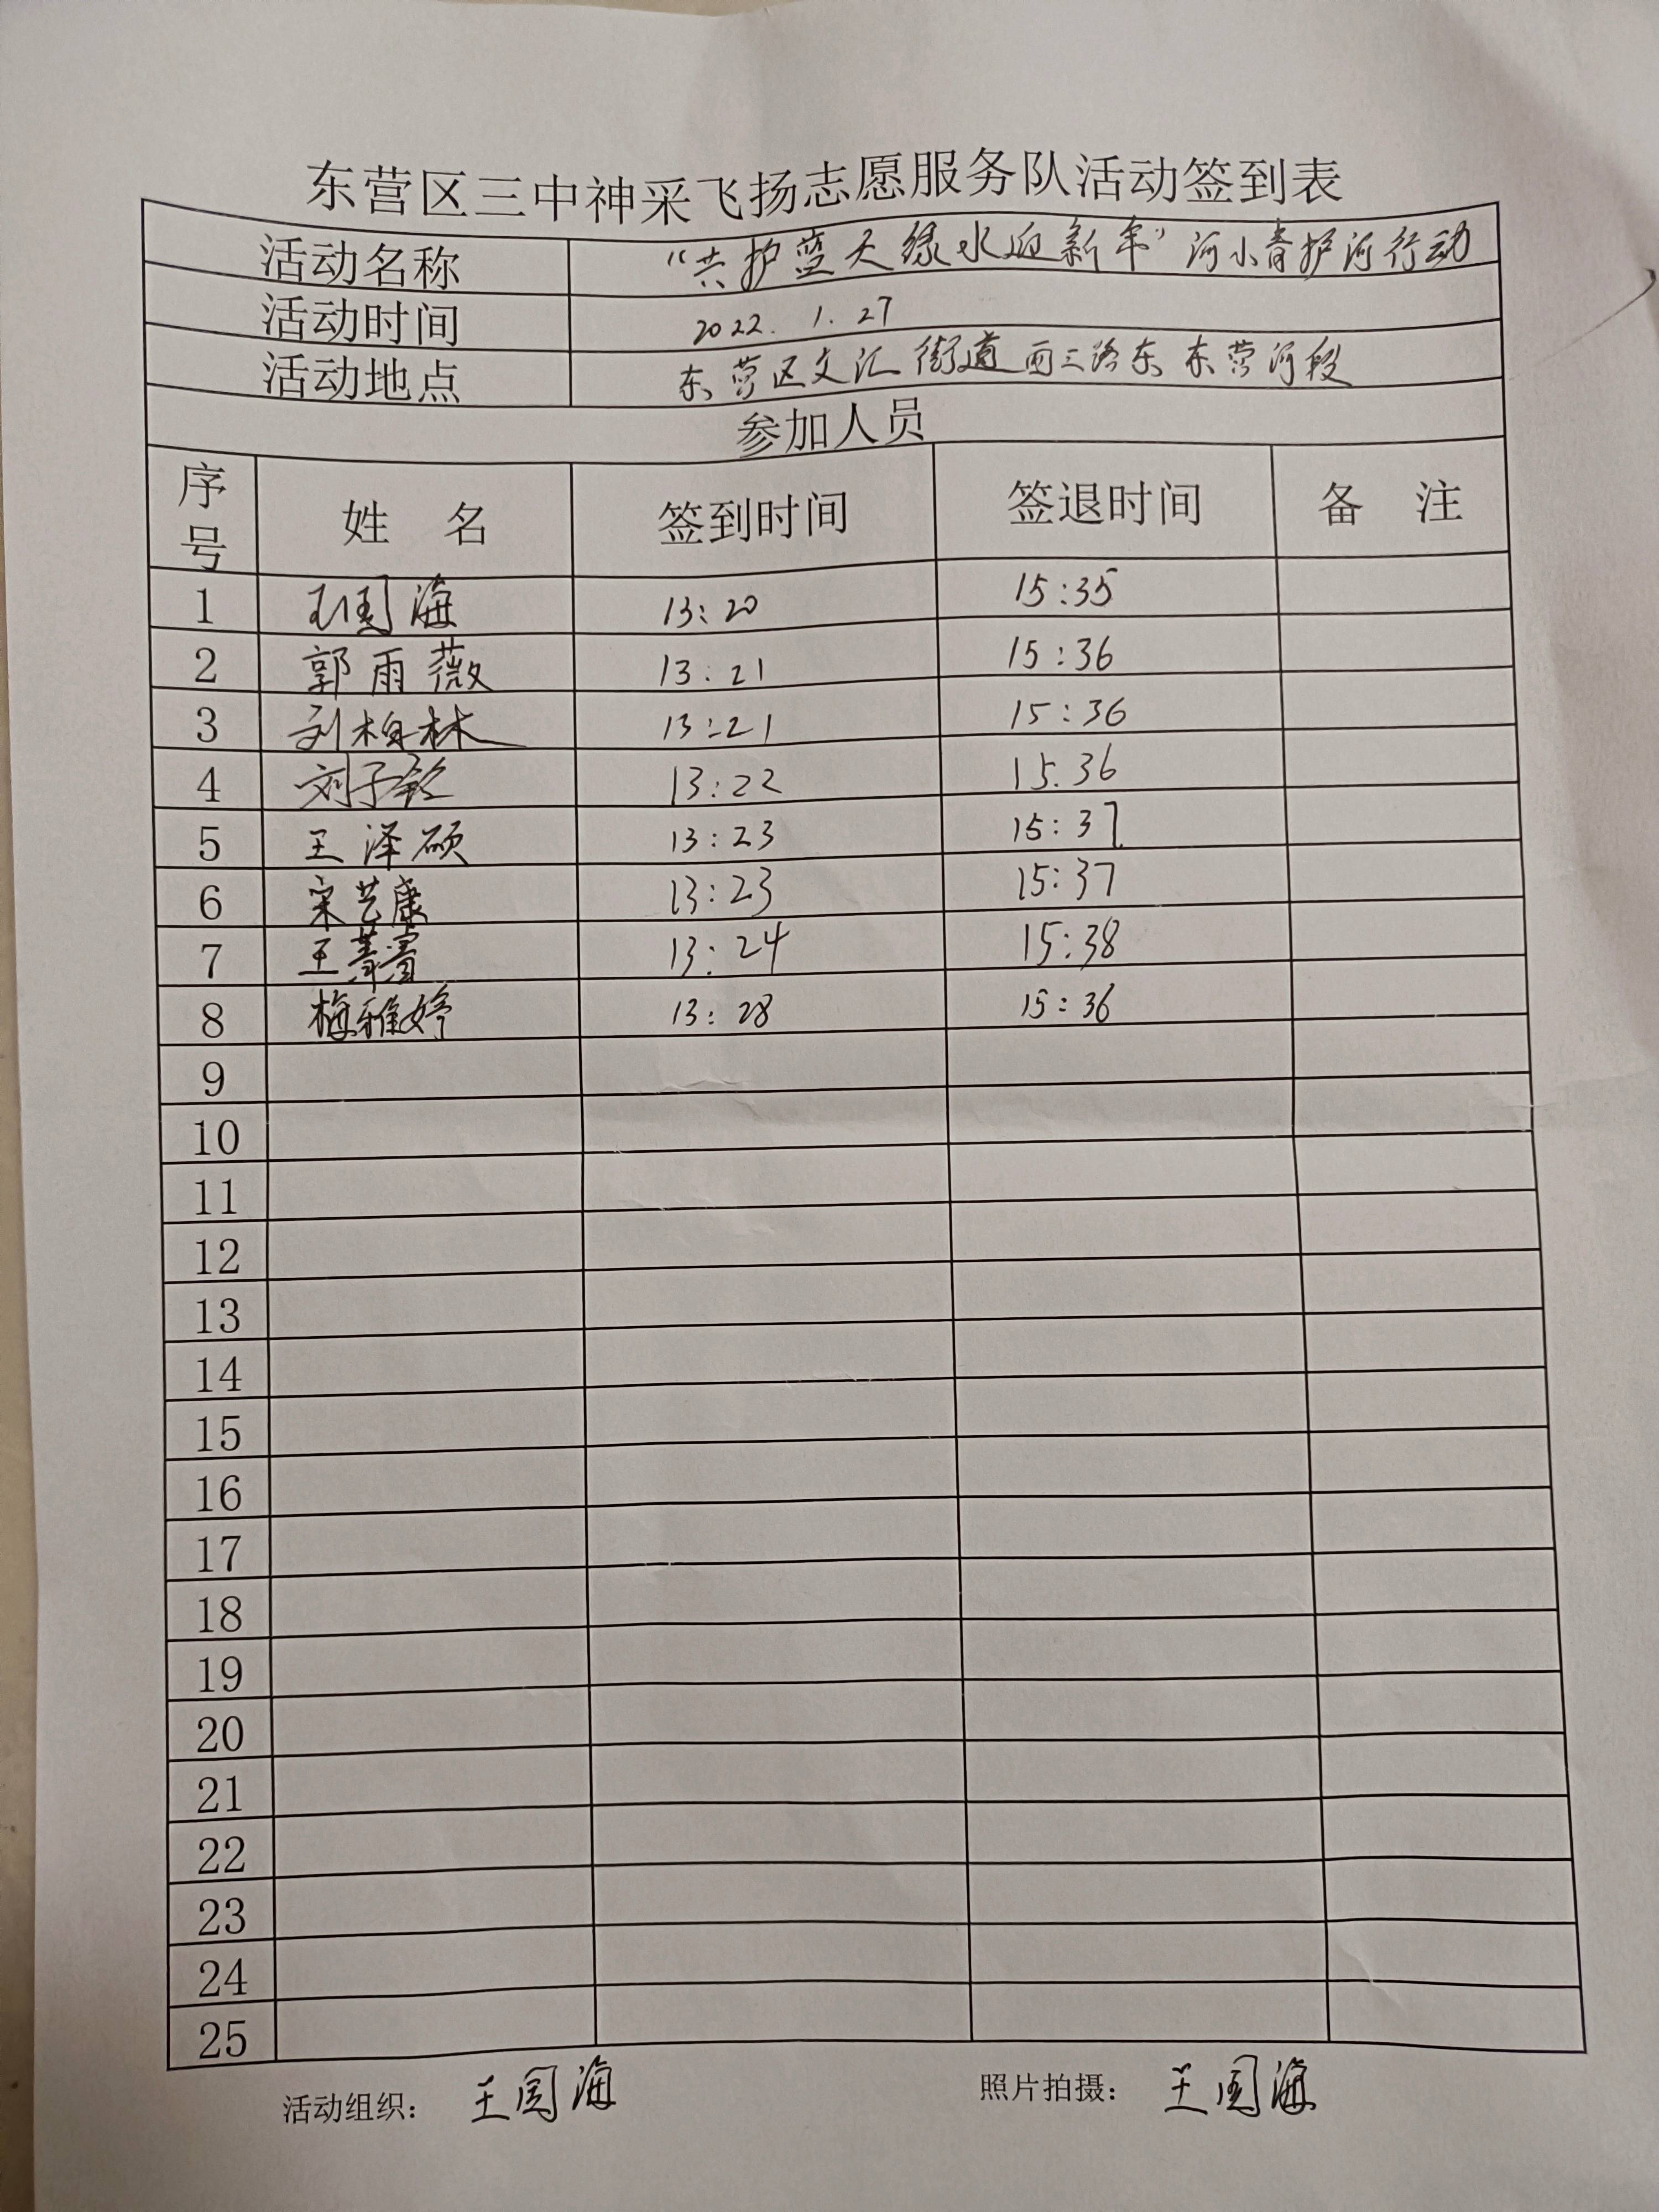 东营区三中神采飞扬志愿服务队活动签到表
活动名称 “共护蓝天绿水迎新年”河小青护河行动
活动时间 2022.1.27
活动地点 东营区文汇街道西三路东东营河段
参加人员
序号 姓 名 签到时间 签退时间 备 注
1 王国海 13:20 15:35
2 郭雨薇 13:21 15:36
3 刘柏林 13:21 15:36
4 刘子铭 13:22 15.36
5 王泽硕 13:23 15:37
6 宋艺康 13:23 15:37
7 王 13:24 15:38
8 梅雅婷 13:28 15:36
9
10
11
12
13
14
15
16
17
18
19
20
21
22
23
24
25
活动组织： 王国海 照片拍摄： 王国海